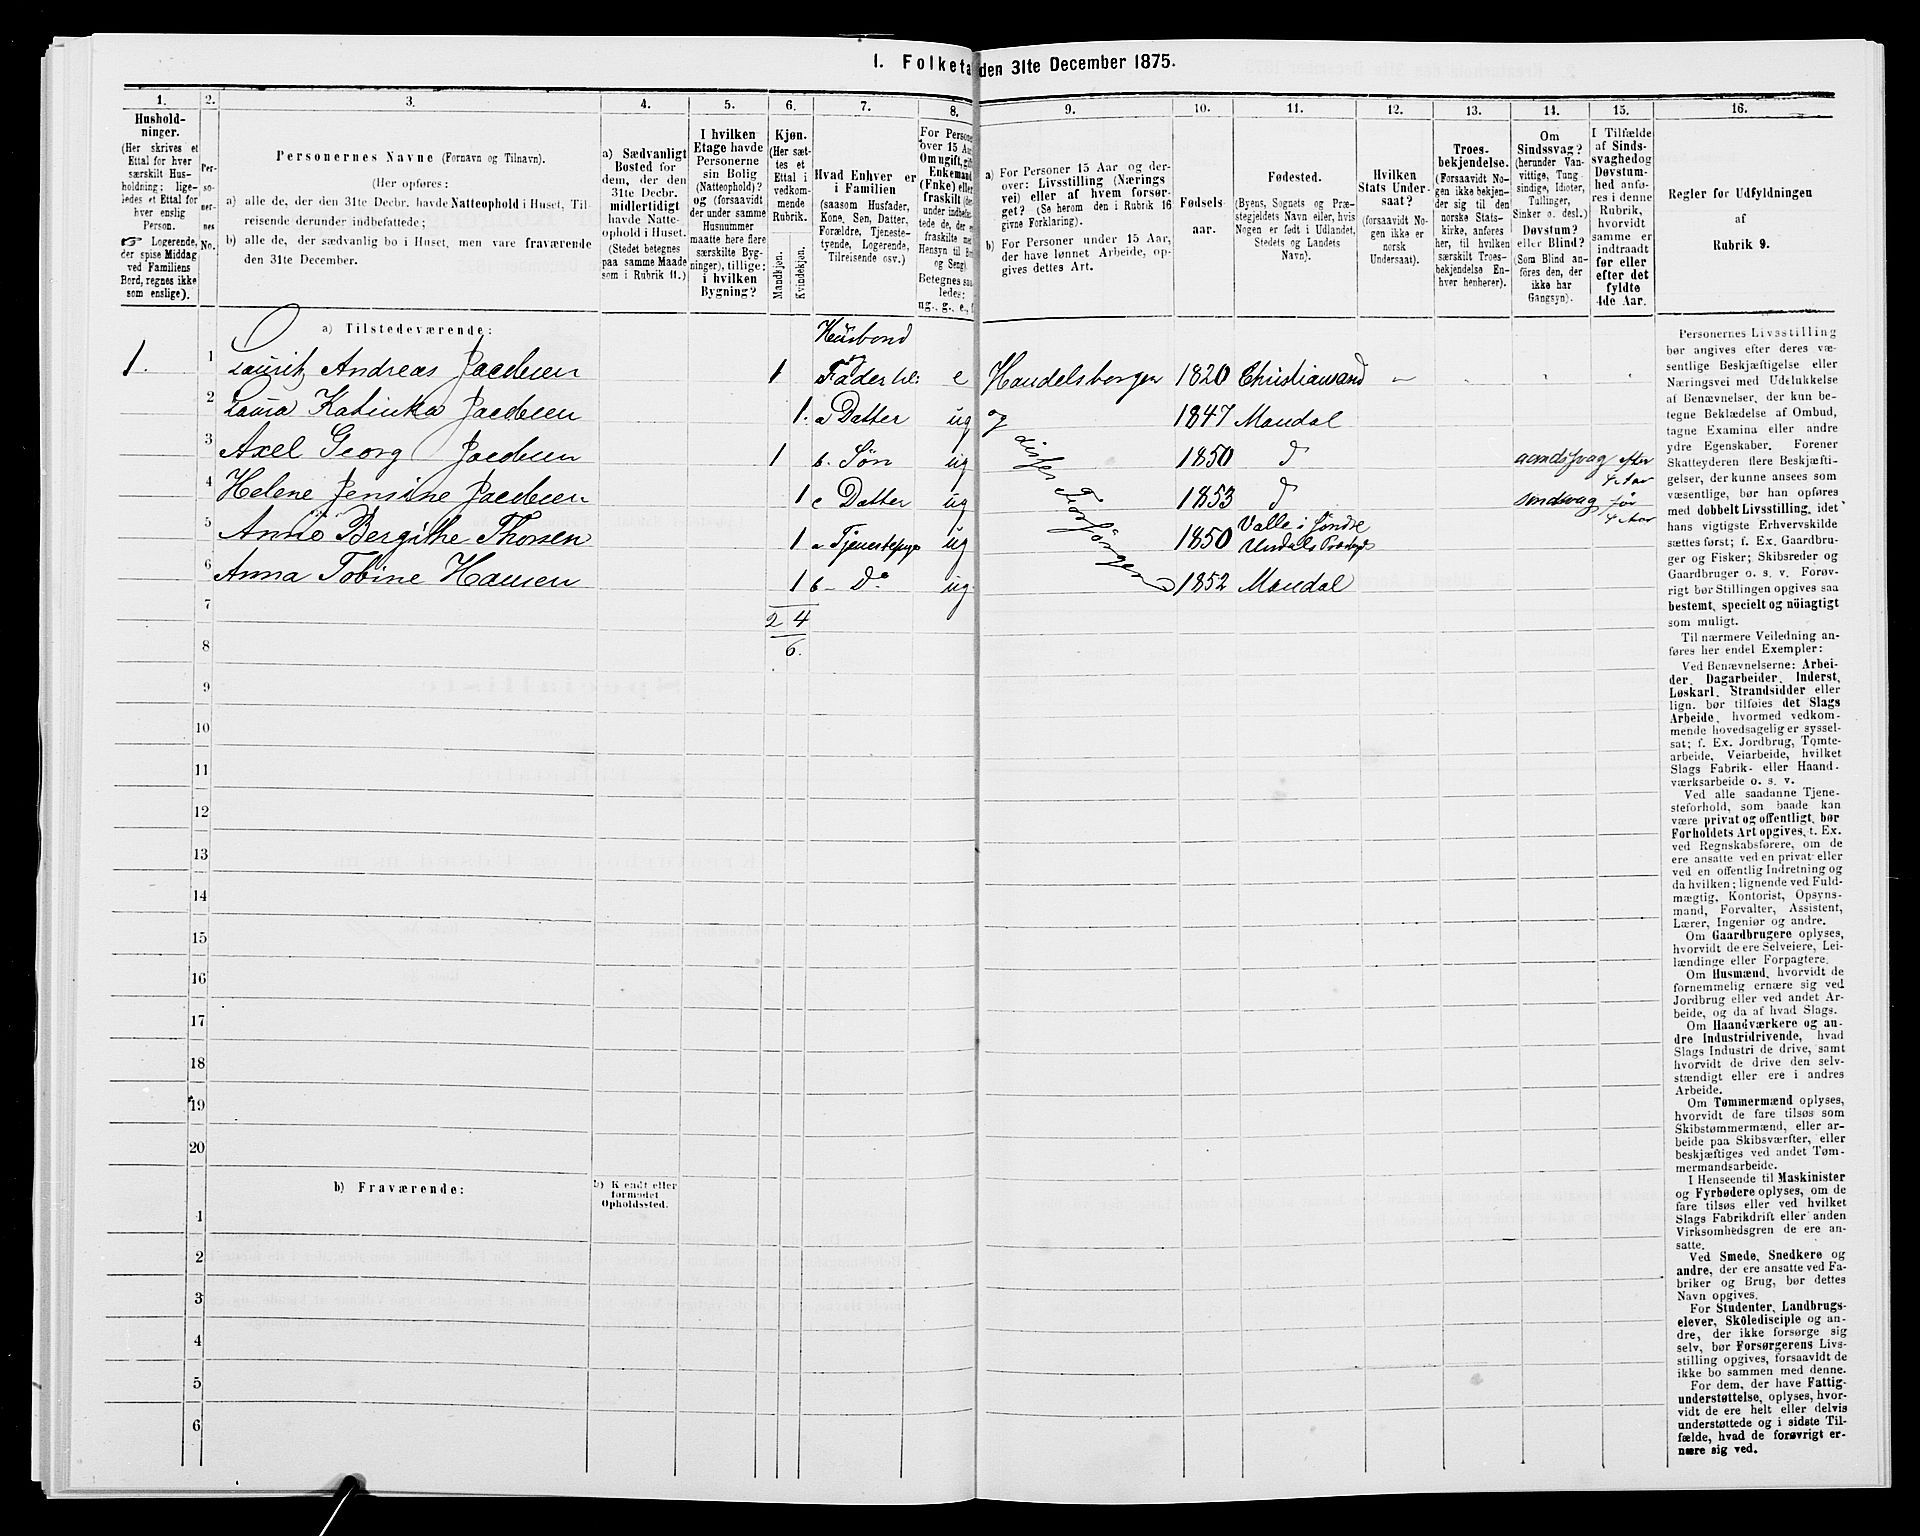 1. Folketa den 31te December 1875.
1.
2.
3.
4.
5.
6.
7.
8.
9.
10.
11.
12.
13.
14.
15.
16.
Hushold-
ninger.
(Her skrives et
Ettal for hver
særskilt Hus-
holdning; lige-
ledes et Ettal for
hver enslig
Person.
☞ Logerende,
der spise Middag
ved Familiens
Bord, regnes ikke
som enslige).
Per-
so-
ner-
nes
No.
Personernes Navne (Fornavn og Tilnavn).
(Her opføres:
a) alle de, der den 31te Decbr. havde Natteophold i Huset, Til-
reisende derunder indbefattede;
b) alle de, der sædvanlig bo i Huset, men vare fraværende
den 31te December.
a) Sædvanligt
Bosted for
dem, der den
31te Decbr.
midlertidigt
havde Natte-
ophold i Huset.
(Stedet betegnes
paa samme Maade
som i Rubrik 11.)
I hvilken
Etage havde
Personerne
sin Bolig
(Natteophold)?
og (forsaavidt
der under samme
Husnummer
maatte høre flere
særskilte Byg-
ninger), tillige:
i hvilken
Bygning?
Kjøn.
(Her sæt-
tes et
Ettal i
vedkom-
mende
Rubrik.
Mandkjøn.
Kvindekjøn.
Hvad Enhver er
i Familien
(saasom Husfader,
Kone, Søn, Datter,
Forældre, Tjeneste-
tyende, Logerende,
Tilreisende osv.)
For Persone
over 15 Aar
Om ugift, gift
Enkemand
(Enke) eller
fraskilt (de
under indbefat-
tede de, der e
fraskilte med
Hensyn til Bo
og Seng).
Betegnes saa-
ledes:
ug., g., e., f
a) For Personer 15 Aar og der-
over: Livsstilling (Nærings
vei) eller af hvem forsør-
get? (Se herom den i Rubrik 16
givne Forklaring).
b) For Personer under 15 Aar,
der have lønnet Arbeide, op-
gives dettes Art.
Fødsels-
aar.
Fødested.
(Byens, Sognets og Præ-
stegjeldets Navn eller, hvis
Nogen er født i Udlandet,
Stedets og Landets
Navn).
Hvilken
Stats Under-
saat?
(forsaavidt No-
gen ikke er
norsk
Undersaat).
Troes-
bekjendelse.
(Forsaavidt No-
gen ikke bekjen-
der sig til den
norske Stats-
kirke, anføres
her, til hvilken
særskilt Troes-
bekjendelse En-
hver henhører).
Om
Sindssvag?
(herunder Van-
vittige, Tung
sindige, Idioter,
Tullinger,
Sinker o. desl.)
Døvstum?
eller Blind?
(Som Blind an-
føres den, der
ikke har
Gangsyn).
I Tilfælde
af Sinds-
svaghed og
Døvstum-
hed anfø-
res i denne
Rubrik,
hvorvidt
samme er
indtraadt
før eller
efter det
fyldte
4de Aar.
Regler for Udfyldningen
af
Rubrik 9.
a) Tilstedeværende:
Husbond
1. 1 Lauritz Andreas Jacobsen 1 Fader e Handelsborger 1820 Christiansand
2 Laura Katinka Jacobsen 1. a Datter ug og 1847 Mandal
3 Axel Georg Jacobsen 1 b. Søn ug disses 1850 efter 4 Aar
4 Helene Jensine Jacobsen 1 c Datter ug Forsørgen 1853 Sindsvag før 4 Aar
5 Anne Bergithe Thorsen 1 a Tjenestepige ug 1850 Valle i Søndre Undals Præstegj
6 Anna Tobine Hansen 1 b - Do ug. 1852 Mandal
7 2 4
8 6.
9
10
11
12
13
14
15
16
17
18
19
20
b) Fraværende:
b) Kjendt eller
formodet
Opholdssted.
1
2
3
4
5
6
Personernes Livsstilling
bør angives efter deres væ-
sentlige Beskjæftigelse eller
Næringsvei med Udelukkelse
af Benævnelser, der kun be-
tegne Beklædelse af Ombud,
tagne Examina eller andre
ydre Egenskaber. Forener
Skatteyderen flere Beskjæfti-
gelser, der kunne ansees som
væsentlige, bør han opføres
med dobbelt Livsstilling, idet
hans vigtigste Erhvervskilde
sættes først; f. Ex. Gaardbru-
ger og Fisker; Skibsreder og
Gaardbruger o. s. v. Forøv-
rigt bør Stillingen opgives saa
bestemt, specielt og nöiagtigt
som muligt.
Til nærmere Veiledning an-
føres her endel Exempler:
Ved Benævnelserne: Arbei-
der, Dagarbeider, Inderst,
Løskarl, Strandsidder eller
lign. bør tilføies det Slags
Arbeide, hvormed vedkom-
mende hovedsagelig er syssel-
sat; f. Ex. Jordbrug, Tomte-
arbeide, Veiarbeide, hvilket
Slags Fabrik- eller Haand-
værksarbeide o. s. v.
Ved alle saadanne Tjene-
steforhold, som baade kan
være privat og offentligt, bør
Forholdets Art opgives, t. Ex.
ved Regnskabsførere, om de
ere ansatte ved en privat eller
ved en offentlig Indretning og
da hvilken; lignende ved Fuld-
mægtig, Kontorist, Opsyns-
mand, Forvalter, Assistent,
Lærer, Ingeniør og andre.
Om Gaardbrugere oplyses,
hvorvidt de ere Selveiere, Lei-
lændinge eller Forpagtere.
Om Husmænd, hvorvidt de
fornemmelig ernære sig ved
Jordbrug eller ved andet Ar-
beide, og da af hvad Slags.
Om Haandværkere og an-
dre Industridrivende, hvad
Slags Industri de drive, samt
hvorvidt de drive den selv-
stændigt eller ere i andres
Arbeide.
Om Tømmermænd oplyses,
hvorvidt de fare tilsøs som
Skibstømmermænd, eller ar-
beide paa Skibsværfter, eller
beskjæftiges ved andet Tøm-
mermandsarbeide.
I Henseende til Maskinister
og Fyrbødere oplyses, om de
fare tilsøs eller ved hvilket
Slags Fabrikdrift eller anden
Virksomhedsgren de ere an-
satte.
Ved Smede, Snedkere og
andre, der ere ansatte ved Fa-
briker og Brug, bør dettes
Navn opgives.
For Studenter, Landbrugs-
elever, Skoledisciple og an-
dre, der ikke forsørge sig
selv, bør Forsørgerens Livs-
stilling opgives, forsaavidt de
ikke bo sammen med denne.
For dem, der have Fattig-
understøttelse, oplyses, hvor-
vidt de ere helt eller delvis
understøttede og i sidste Til-
fælde, hvad de forøvrigt er-
nære sig ved.